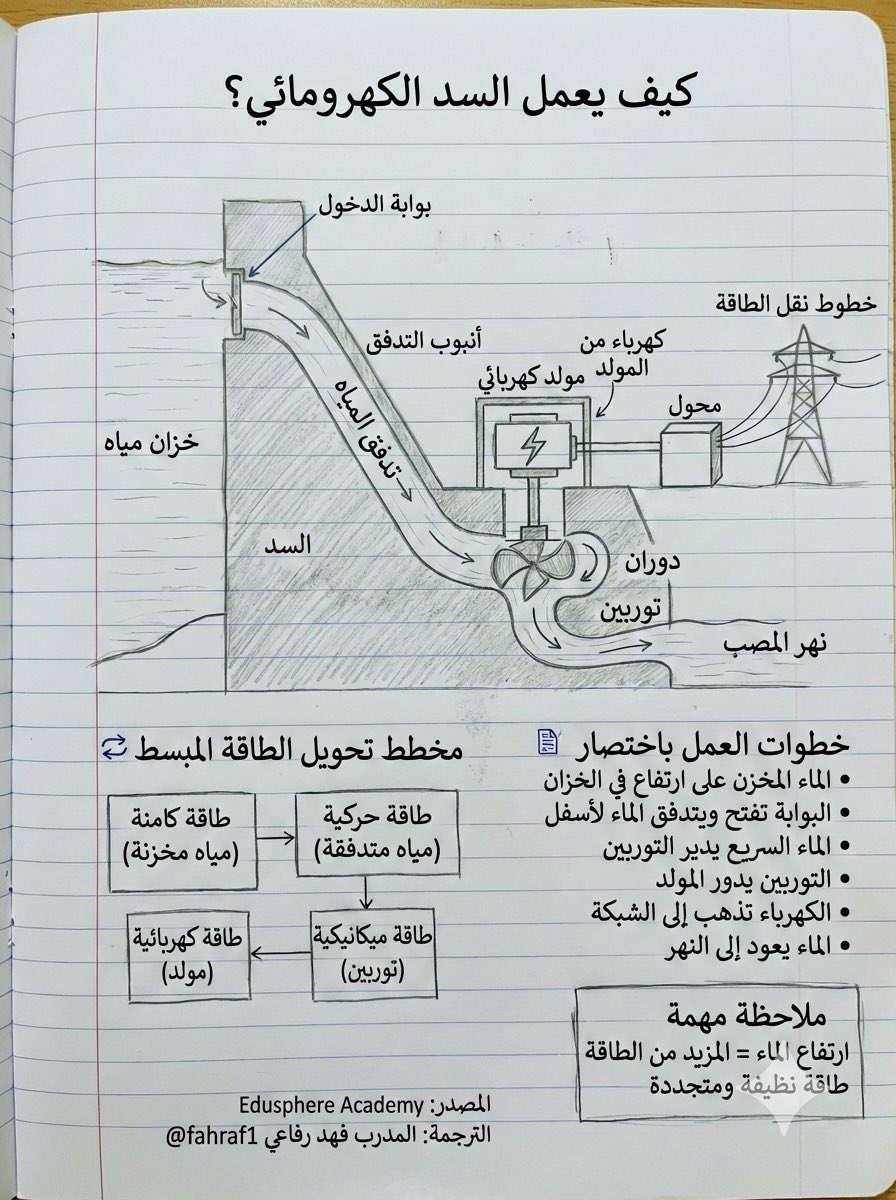 كيف يعمل السد الكهرومائي؟
بوابة الدخول
خطوط نقل الطاقة
أنبوب التدفق
كهرباء من
المولد
مولد كهربائي
محول
تدفق المياه
خزان مياه
السد
دوران
توربين
نهر المصب
خطوات العمل باختصار
• الماء المخزن على ارتفاع في الخزان
• البوابة تفتح ويتدفق الماء لأسفل
• الماء السريع يدير التوربين
• التوربين يدور المولد
• الكهرباء تذهب إلى الشبكة
• الماء يعود إلى النهر
مخطط تحويل الطاقة المبسط
طاقة كامنة
(مياه مخزنة)
طاقة حركية
(مياه متدفقة)
طاقة ميكانيكية
(توربين)
طاقة كهربائية
(مولد)
ملاحظة مهمة
ارتفاع الماء = المزيد من الطاقة
طاقة نظيفة ومتجددة
المصدر: Edusphere Academy
الترجمة: المدرب فهد رفاعي @fahraf1